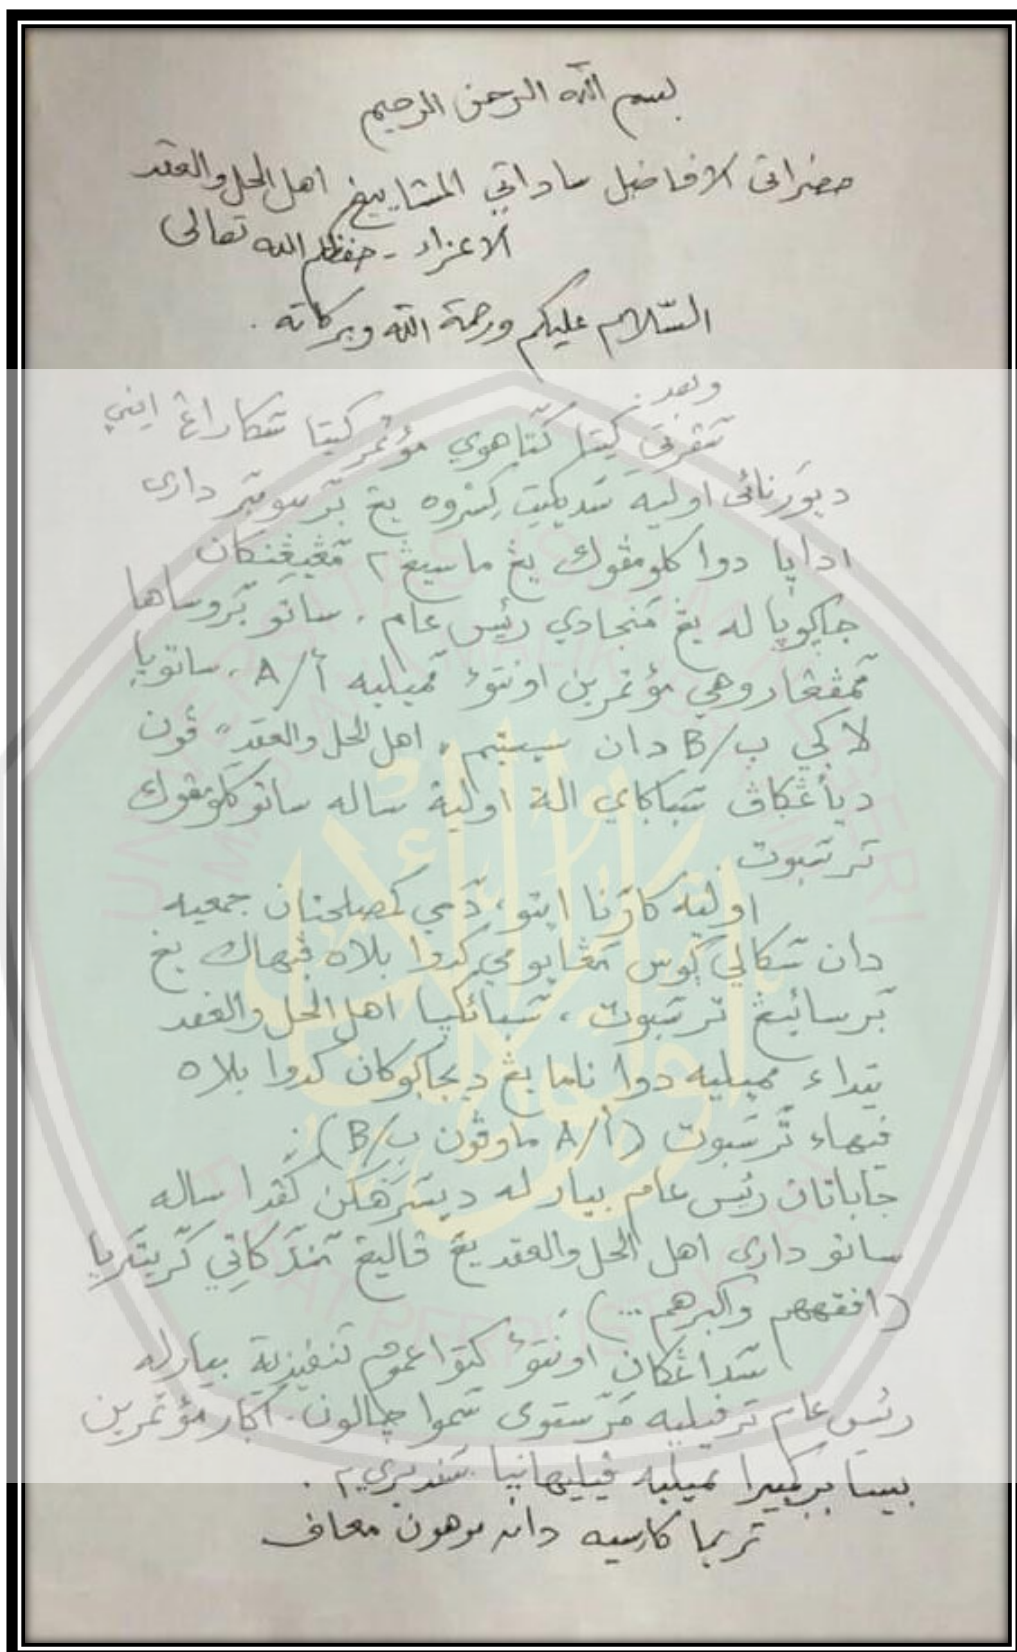 بسم الله الرحمن الرحيم
حضراتي الافاضل ساداتي المشاييخ اهل الحل والعقد
الاعزاء - حفظكم الله تعالى
السّلام عليكم ورحمة الله وبركاته .
وبعد .
سڤرتي كيتا كتاهوي مؤتمر كيتا سكاراڠ ايني
ديورنائى اوليه سديكيت كسروه يڠ برسومبر دارى
اداپا دوا كلومڤوك يڠ ماسيڠ٢ مڠيڠنكان
جاڬوپا له يڠ منجادي رئيس عام . ساتو بروساها
ممڤڠاروهي مؤتمرين اونتوء ميليه أ/A ، ساتوپا
لاڬي ب/B دان سيستم "اهل الحل والعقد" ڤون
دياڠڬاڤ سباڬاي الة اوليه ساله ساتو كلومڤوك
ترسبوت .
اوليه كارنا ايتو ، دمي كمصلحتان جمعيه
دان سكالي ڬوس مڠايومي كدوا بلاه ڤيهاك يڠ
برسائيڠ ترسبوت ، سبائكپا اهل الحل والعقد
تيداء ميليه دوا ناما يڠ ديجاڬوكان كدوا بلاه
ڤيهاء ترسبوت (أ/A ماوڤون ب/B) .
جاباتان رئيس عام بيار له ديسرهكن كڤدا ساله
ساتو دارى اهل الحل والعقد يڠ ڤاليڠ مندكاتي كريتريا
(افقههم واكبرهم ...) .
سداڠكان اونتوء كتوا عموم تنفيذية بيارله
رئيس عام ترڤيليه مرستوى سموا چالون . اڬار مؤتمرين
بيسا بركمبيرا ميليه ڤيليهانپا سنديري٢ .
تريما كاسيه دان موهون معاف